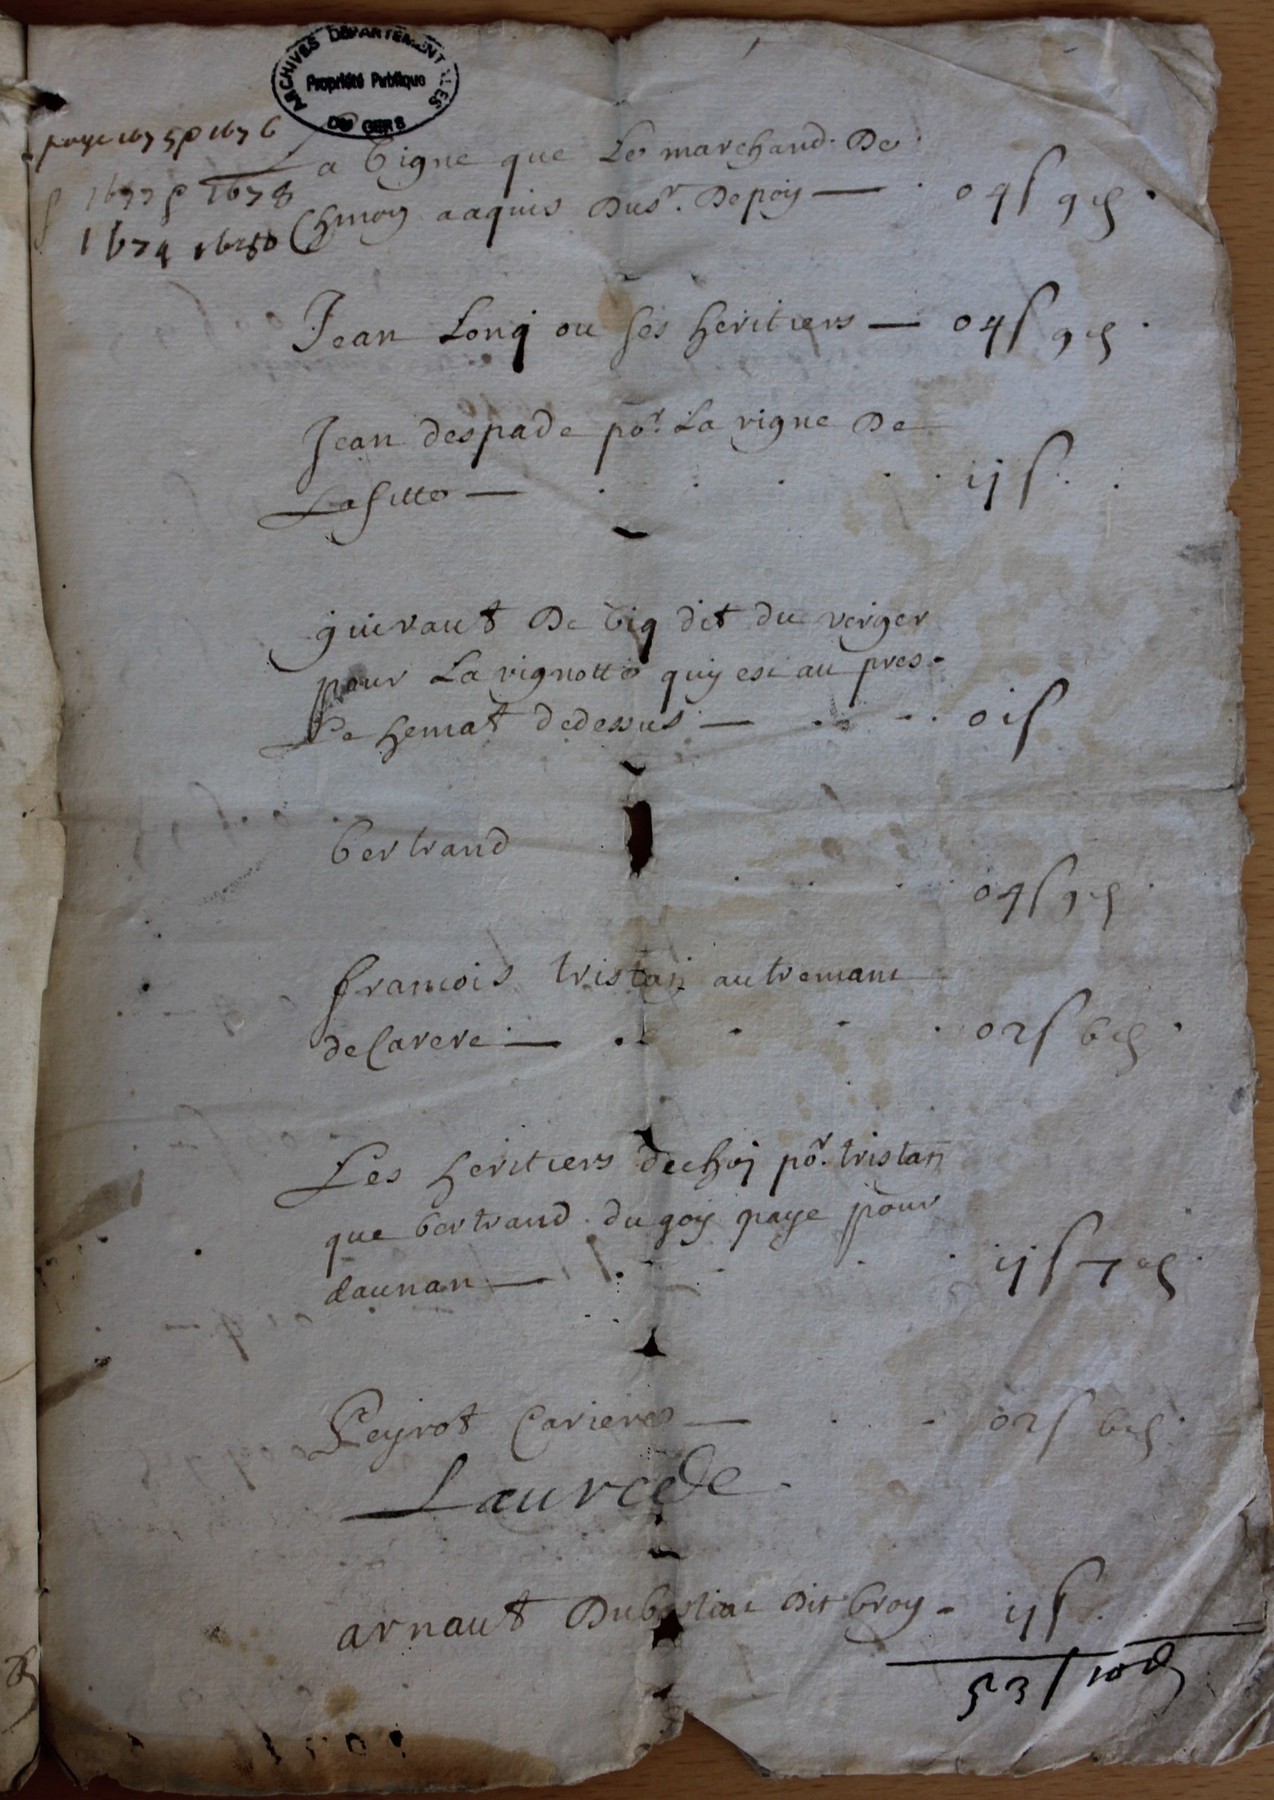 ARCHIVES DÉPARTEMENTALES
Propriété Publique
DU GERS
paye 1675 p 1676
1677 p 1678
1679 1680
La bigne que Le marchand De
Chmoy a aquis Dusr. Depoy — 04ſ 9d
Jean Lonq ou ses heritiers — 04ſ 9d
Jean despade por La vigne De
Lafitte — ijſ
guiraut De big dit du verger
pour La vignotte quy est au pres
Le hemat dedessus — 01ſ
bertrand
04ſ 9d
francois tristan autremant
deCarere — 02ſ 6d
Les heritiers dechoj por. tristan
que bertrand dugoy paye pour
daunan — ijſ 7d
Peyrot Cariere — 02ſ 6d
Laurede
arnaut Dit broy - ijſ
53ſ 10d